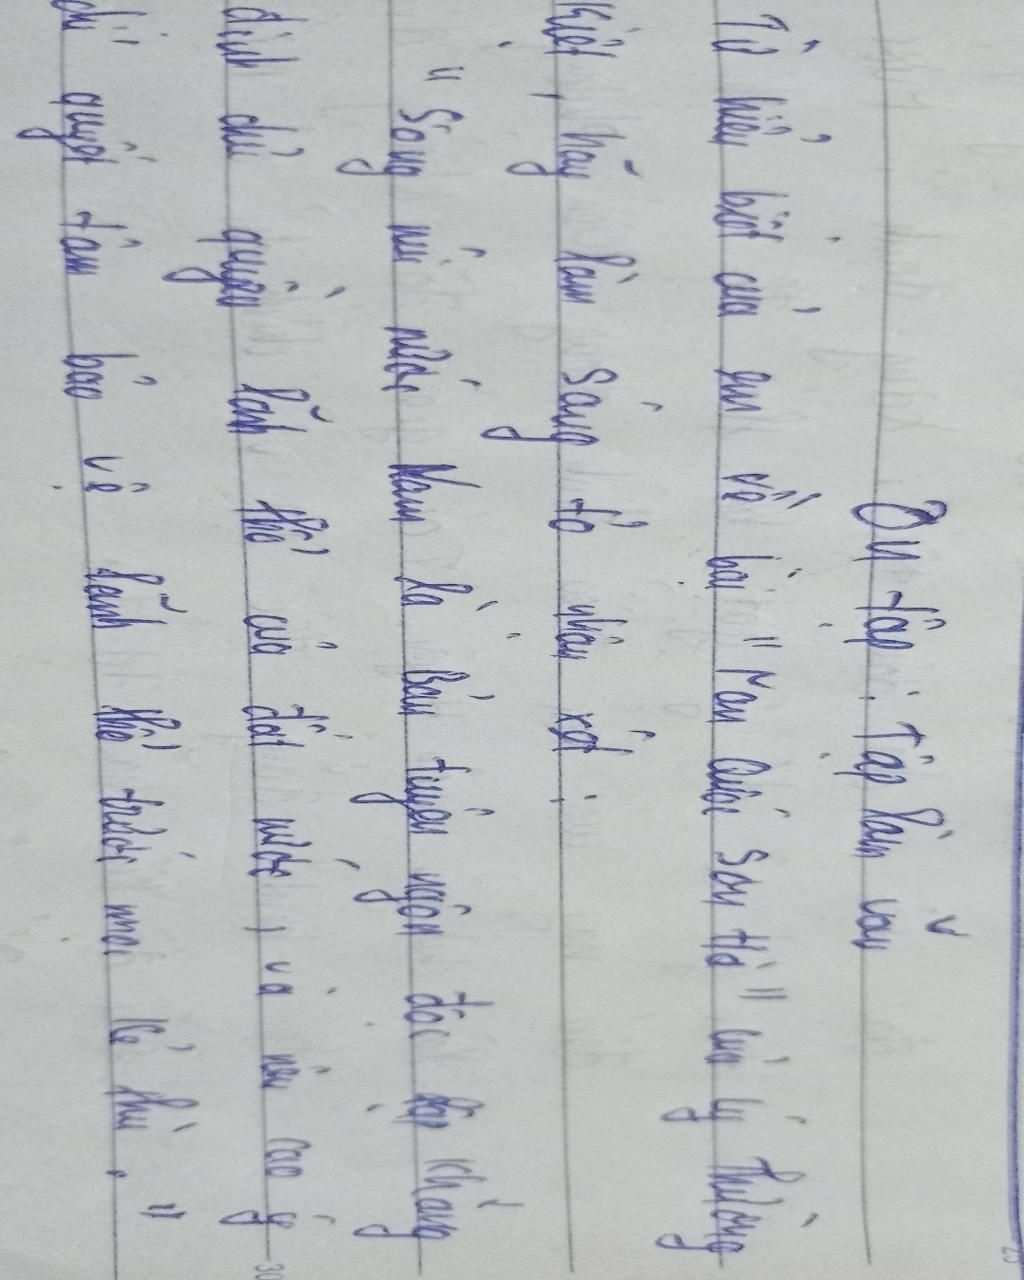 Ôn tập : Tập làm văn
Từ hiểu biết của em về bài " Nam Quốc Sơn Hà " của Lý Thường
Kiệt , hãy làm sáng tỏ nhận xét :
" Sông núi nước Nam là Bản tuyên ngôn độc lập khẳng
định chủ quyền lãnh thổ của đất nước , và nêu cao ý
chí quyết tâm bảo vệ lãnh thổ trước mọi kẻ thù . "
30